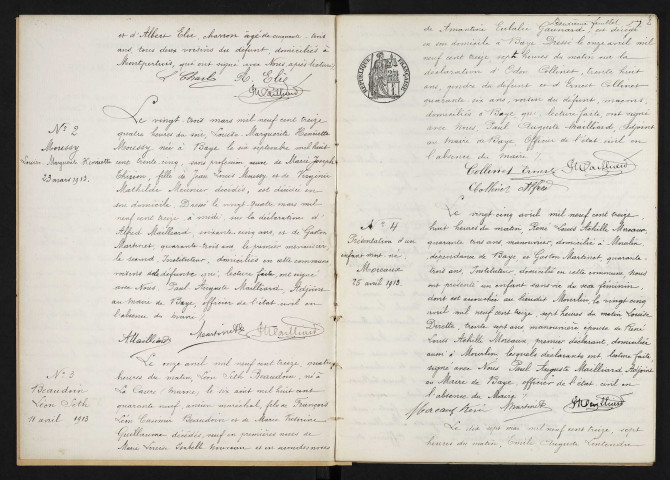 et d'Albert Elie, charron âgé de cinquante-trois
ans, tous deux voisins du défunt, domiciliés à
Montpertuis, qui ont signé avec Nous, après lecture
A. Elie
Maillard
N° 2
Moussy
Louise Marguerite Henriette
23 mars 1913.
Le vingt-trois mars mil neuf cent treize
quatre heures du soir, Louise Marguerite Henriette
Moussy née à Baye le six septembre mil huit
cent trente cinq, sans profession, veuve de Marie Joseph
Thirion, fille de Jean Louis Moussy et de Virginie
Mathilde Meunier décédés, est décédée en
son domicile. Dressé le vingt quatre mars mil
neuf cent treize, à midi, sur la déclaration d'
Alfred Mailliard, soixante cinq ans, et de Gaston
Martinet, quarante trois ans, le premier menuisier
le second, Instituteur, domiciliés en cette commune
voisins de la défunte qui, lecture faite, ont signé
avec Nous Paul Auguste Mailliard, Adjoint
au maire de Baye, officier de l'état civil en
l'absence du maire /
AMailliard Martinet Mailliard
N° 3
Beaudoin
Léon Seth
11 avril 1913
Le onze avril mil neuf cent treize, quatre
heures du matin, Léon Seth Beaudoin, né à
La Caure (Marne), le six août mil huit cent
quarante neuf, ancien maréchal, fils de François
Léon Casimir Beaudoin et de Marie Victorine
Guillaume décédés, veuf en premières noces de
Marie Louise Isabelle et en secondes noces
Deuxième feuillet
RÉPUBLIQUE FRANÇAISE
de Amantine Eulalie est décédé
en son domicile à Baye. Dressé le onze avril mil
neuf cent treize sept heures du matin sur la
déclaration d'Odon Collinet, trente huit
ans, gendre du défunt et d'Ernest Collinet
quarante six ans, voisin du défunt,
domiciliés à Baye, qui, lecture faite, ont signé
avec Nous Paul Auguste Mailliard, Adjoint
au maire de Baye Officier de l'état civil en
l'absence du maire /
Collinet Ernest Mailliard
N° 4
Présentation d'un
enfant mort-né
Moreaux
25 avril 1913.
Le vingt cinq avril mil neuf cent treize
huit heures du matin, René Louis Achille Moreaux,
quarante trois ans, manouvrier, domicilié à
dépendance de Baye et Gaston Martinet, quarante-
trois ans, Instituteur, domicilié en cette commune, Nous
ont présenté un enfant sans vie du sexe féminin,
dont est accouchée au lieudit le vingt cinq
avril mil neuf cent treize, sept heures du matin Louise
trente sept ans, manouvrière épouse de René
Louis Achille Moreaux, premier déclarant, domiciliée
aussi à Lesquels déclarants ont, lecture faite,
signé avec Nous, Paul Auguste Mailliard, Adjoint
au Maire de Baye officier de l'état civil en
l'absence du Maire /
Moreaux René Martinet Mailliard
Le dix sept mai mil neuf cent treize, sept
heures du matin, Emile Auguste